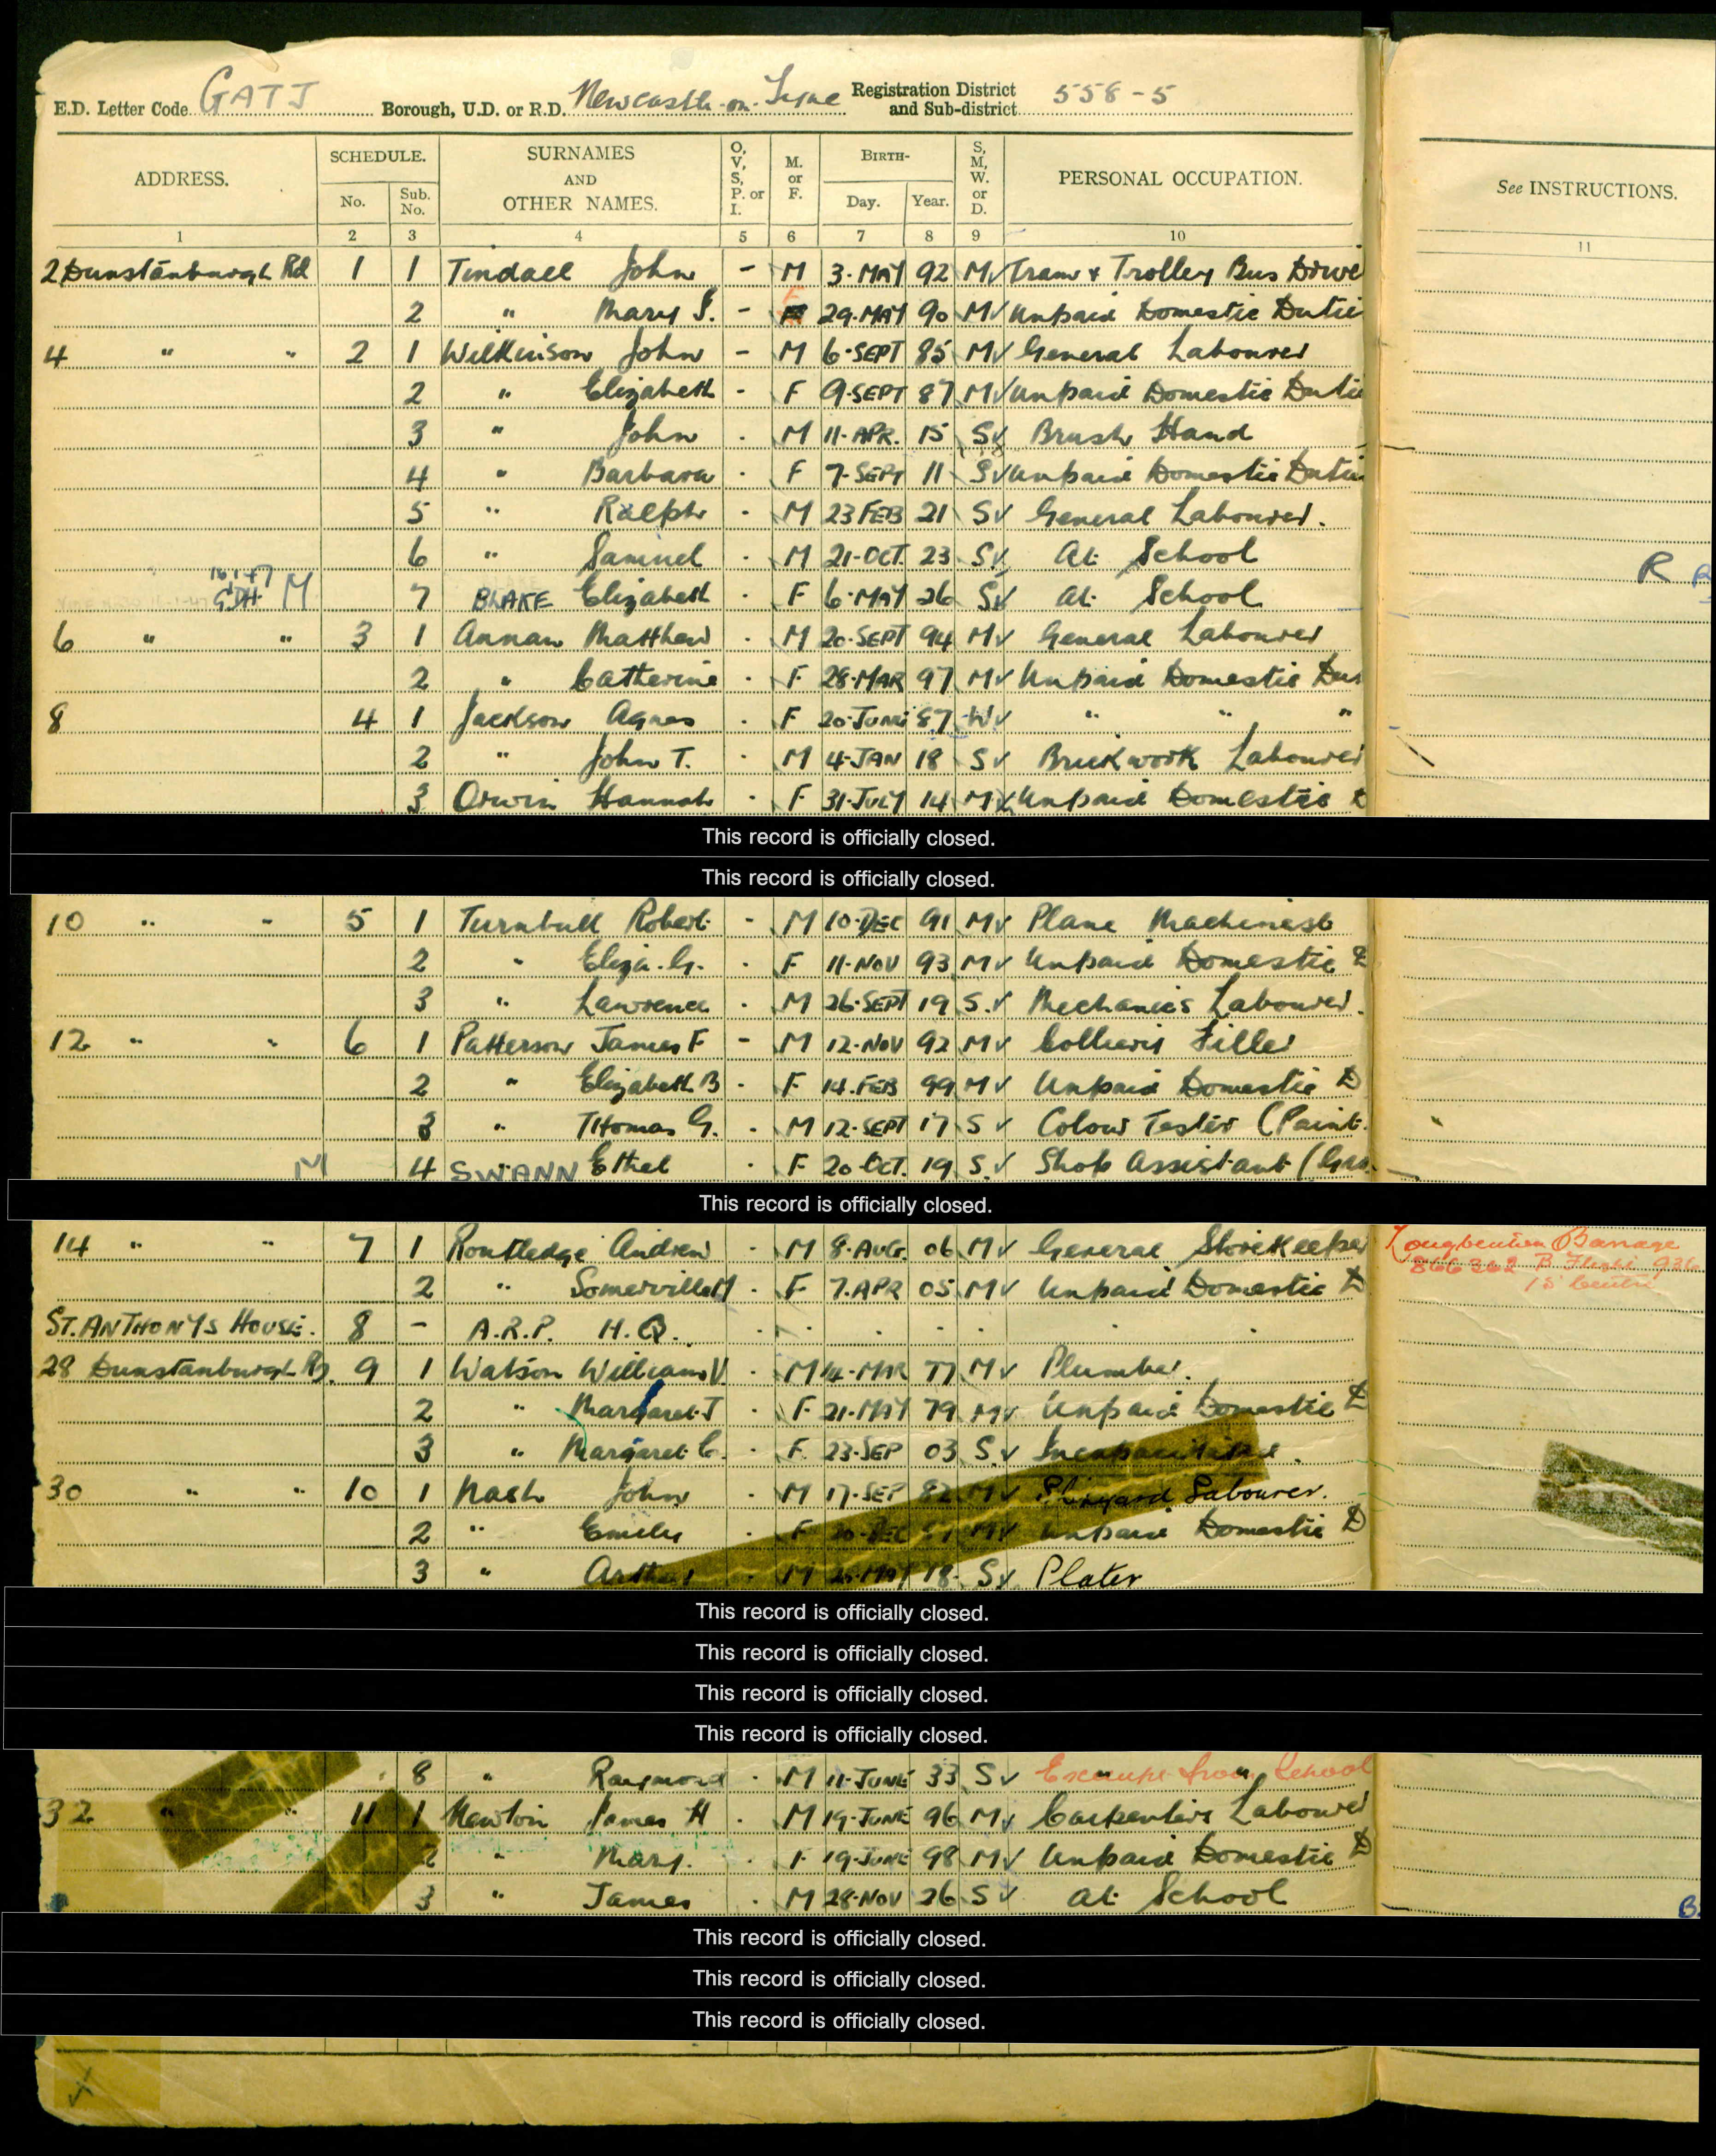 E.D. Letter Code GATJ Borough, U.D. or R.D. Newcastle-on-Tyne Registration District and Sub-district 558-5
ADDRESS. SCHEDULE. No. Sub. No. SURNAMES AND OTHER NAMES. O, V, S, P. or I. M. or F. BIRTH- Day. Year. S, M, W. or D. PERSONAL OCCUPATION. See INSTRUCTIONS.
1 2 3 4 5 6 7 8 9 10 11
2 Dunstanburgh Rd 1 1 Tindall John - M 3·MAY 92 M Tram & Trolley Bus Drive
2 " Mary J. - F 29·MAY 90 M Unpaid Domestic Dutie
4 " " 2 1 Wilkinson John - M 6·SEPT 85 M General Labourer
2 " Elizabeth - F 9·SEPT 87 M Unpaid Domestic Dutie
3 " John . M 11·APR. 15 S Brush Hand
4 " Barbara . F 7·SEPT 11 S Unpaid Domestic Dutie
5 " Ralph . M 23 FEB 21 S General Labourer.
6 " Samuel . M 21·OCT. 23 S At School R
16 1 47 GDH M 7 BLAKE Elizabeth . F 6·MAY 26 S At School
6 " " 3 1 Annan Matthew . M 20·SEPT 94 M General Labourer
2 " Catherine . F 28·MAR 97 M Unpaid Domestic Du
8 4 1 Jackson Agnes . F 20·JUNE 87 W " " "
2 " John T. . M 4·JAN 18 S Brickwork Labourer
3 Orwin Hannah . F 31·JULY 14 M Unpaid Domestic D
This record is officially closed.
This record is officially closed.
10 " " 5 1 Turnbull Robert - M 10·DEC 91 M Plane Machinist
2 " Eliza. G. . F 11·NOV 93 M Unpaid Domestic D
3 " Lawrence . M 26·SEPT 19 S. Mechanics Labourer.
12 " " 6 1 Patterson James F - M 12·NOV 92 M Colliery Filler
2 " Elizabeth B . F 14·FEB 99 M Unpaid Domestic D
3 " Thomas G. . M 12·SEPT 17 S Colour Tester (Paint.
M 4 SWANN Ethel . F 20·OCT. 19 S. Shop Assistant (
This record is officially closed.
14 " " 7 1 Routledge Andrew . M 8·AUG. 06 M General Storekeeper Longbenton Barrage
866262 B Flight 936
2 " Somerville M . F 7.APR 05 M Unpaid Domestic D
ST. ANTHONYS HOUSE. 8 - A.R.P. H.Q.
28 Dunstanburgh Rd. 9 1 Watson William V. M 14·MAR 77 M Plumber.
2 " Margaret J . F 21·MAY 79 M Unpaid Domestic D
3 " Margaret C. . F. 23·SEP 03 S. Incapacitated.
30 " " 10 1 Nash John . M 17·SEP 82 M Shipyard Labourer.
2 " Emily . F DEC M Unpaid Domestic D
3 " Arthur . M MAY 18 S Plater
This record is officially closed.
This record is officially closed.
This record is officially closed.
This record is officially closed.
8 " Raymond . M 11·JUNE 33 S Exempt from School
32 " " 11 1 Newton James H . M 19·JUNE 96 M Carpenters Labourer
2 " Mary. . F 19·JUNE 98 M Unpaid Domestic D
3 " James . M 28·NOV 26 S At School B
This record is officially closed.
This record is officially closed.
This record is officially closed.